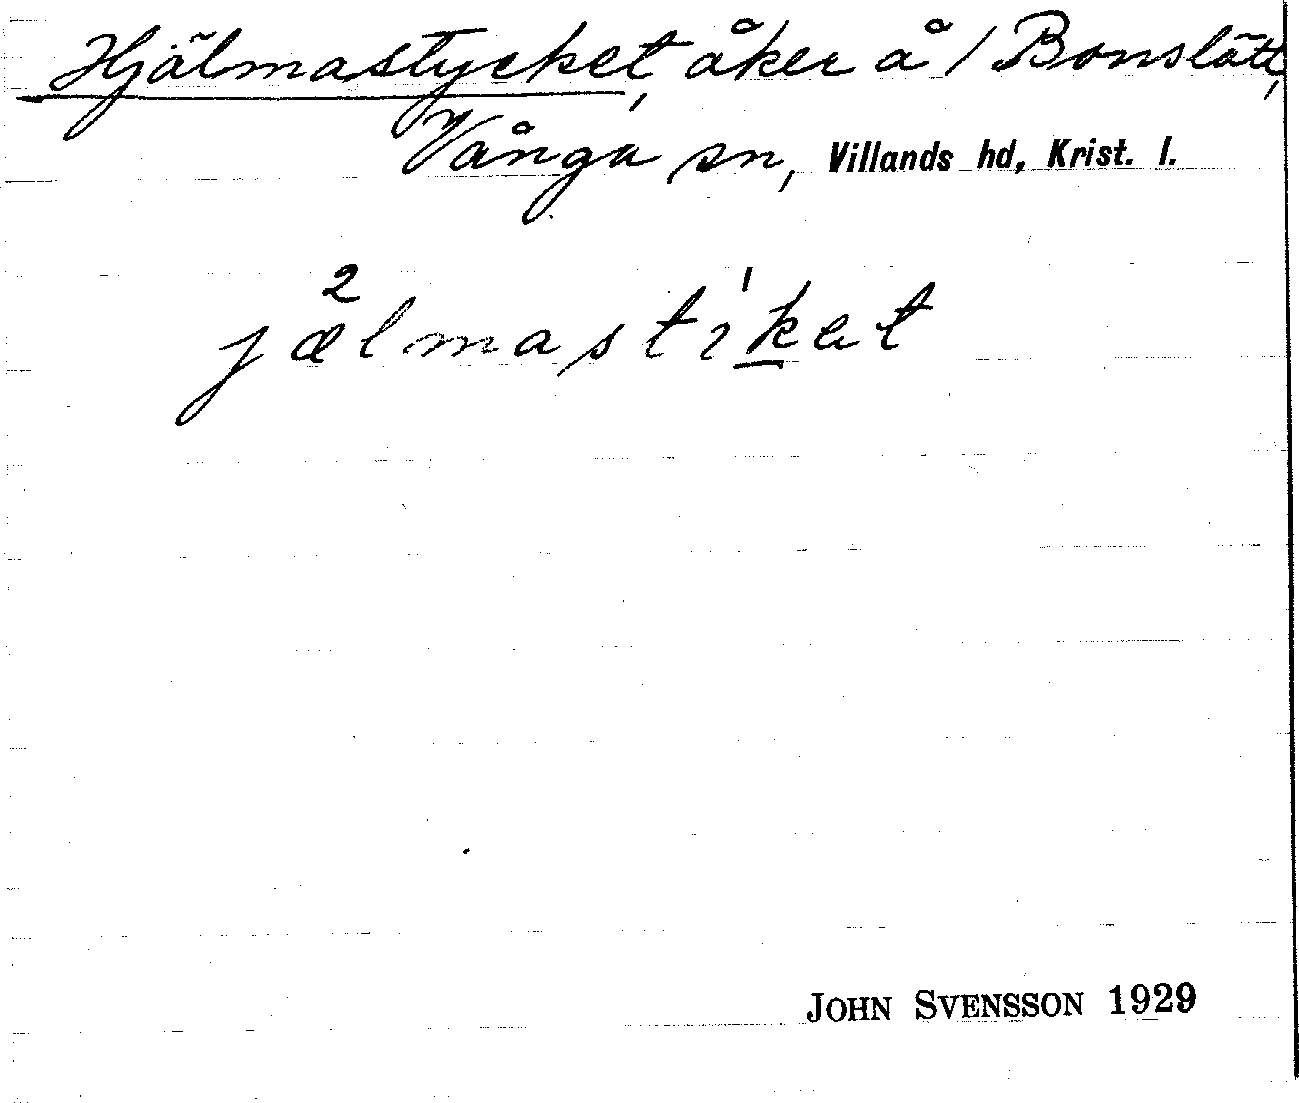 Hjälmastycket, åker å / Bonslätt,
Vånga sn, Villands hd, Krist. l.
2 1
jælmastiket
JOHN SVENSSON 1929